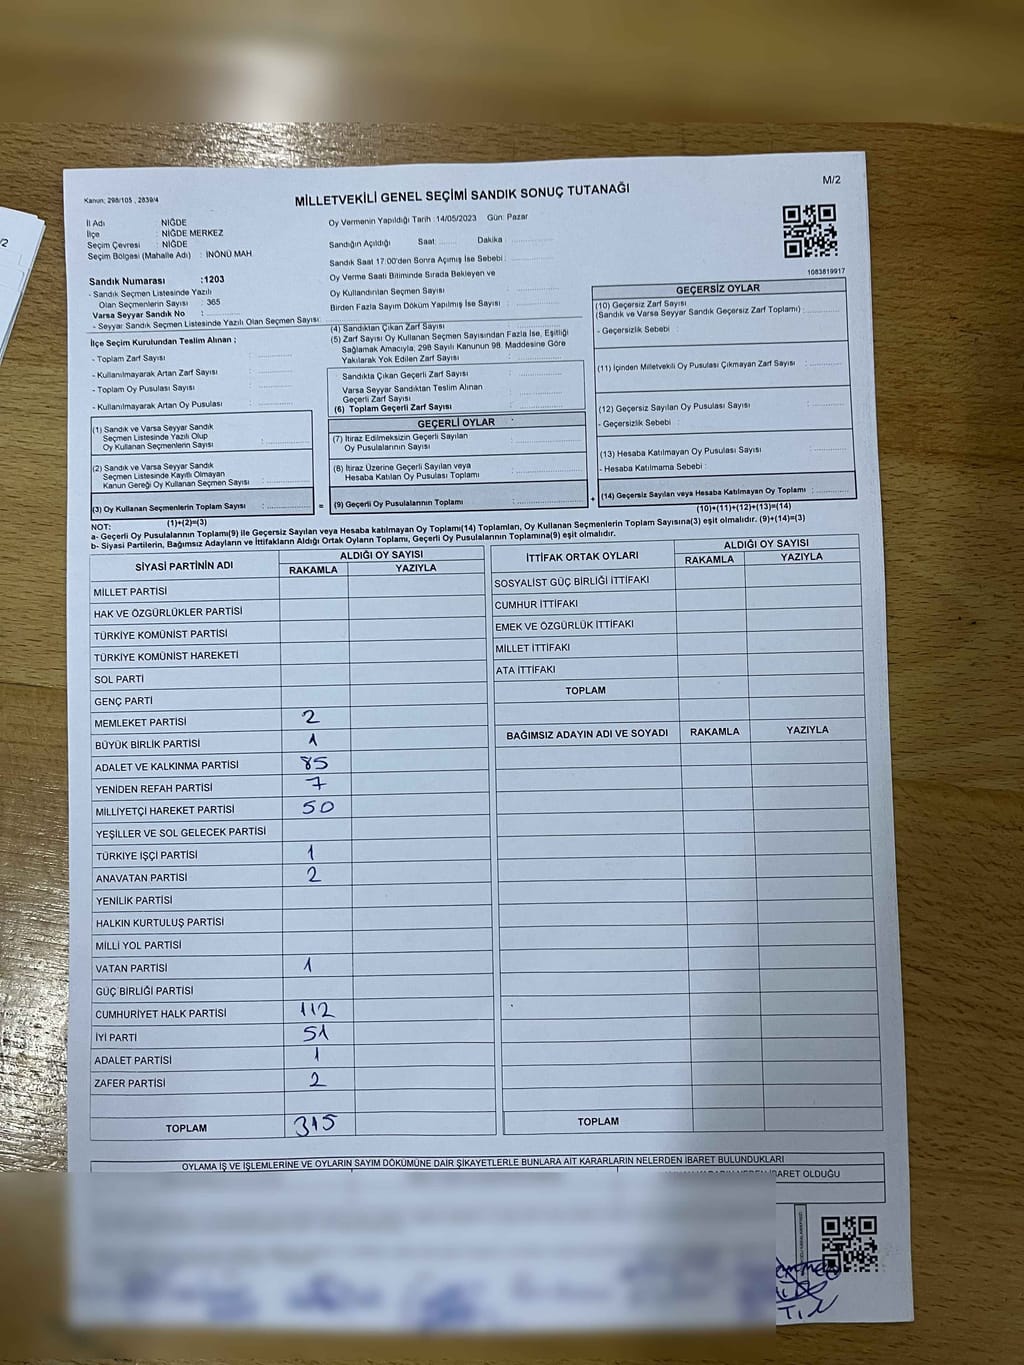 Kanun; 298/105 , 2839/4
MİLLETVEKİLİ GENEL SEÇİMİ SANDIK SONUÇ TUTANAĞI
M/2
İl Adı : NİĞDE
İlçe : NİĞDE MERKEZ
Seçim Çevresi : NİĞDE
Seçim Bölgesi (Mahalle Adı) : İNÖNÜ MAH
Sandık Numarası :1203
- Sandık Seçmen Listesinde Yazılı
Olan Seçmenlerin Sayısı : 365
Varsa Seyyar Sandık No :
- Seyyar Sandık Seçmen Listesinde Yazılı Olan Seçmen Sayısı:
İlçe Seçim Kurulundan Teslim Alınan ;
- Toplam Zarf Sayısı :
- Kullanılmayarak Artan Zarf Sayısı :
- Toplam Oy Pusulası Sayısı :
- Kullanılmayarak Artan Oy Pusulası :
(1) Sandık ve Varsa Seyyar Sandık
Seçmen Listesinde Yazılı Olup
Oy Kullanan Seçmenlerin Sayısı :
(2) Sandık ve Varsa Seyyar Sandık
Seçmen Listesinde Kayıtlı Olmayan
Kanun Gereği Oy Kullanan Seçmen Sayısı :
(3) Oy Kullanan Seçmenlerin Toplam Sayısı :
(1)+(2)=(3)
Oy Vermenin Yapıldığı Tarih :14/05/2023 Gün: Pazar
Sandığın Açıldığı Saat: Dakika :
Sandık Saat 17:00'den Sonra Açımış İse Sebebi :
Oy Verme Saati Bitiminde Sırada Bekleyen ve
Oy Kullandırılan Seçmen Sayısı :
Birden Fazla Sayım Döküm Yapılmış İse Sayısı :
(4) Sandıktan Çıkan Zarf Sayısı :
(5) Zarf Sayısı Oy Kullanan Seçmen Sayısından Fazla İse, Eşitliği
Sağlamak Amacıyla, 298 Sayılı Kanunun 98. Maddesine Göre
Yakılarak Yok Edilen Zarf Sayısı :
Sandıkta Çıkan Geçerli Zarf Sayısı :
Varsa Seyyar Sandıktan Teslim Alınan
Geçerli Zarf Sayısı :
(6) Toplam Geçerli Zarf Sayısı :
GEÇERLİ OYLAR
(7) İtiraz Edilmeksizin Geçerli Sayılan
Oy Pusulalarının Sayısı :
(8) İtiraz Üzerine Geçerli Sayılan veya
Hesaba Katılan Oy Pusulası Toplamı :
= (9) Geçerli Oy Pusulalarının Toplamı :
1083819917
GEÇERSİZ OYLAR
(10) Geçersiz Zarf Sayısı
(Sandık ve Varsa Seyyar Sandık Geçersiz Zarf Toplamı) :
- Geçersizlik Sebebi :
(11) İçinden Milletvekili Oy Pusulası Çıkmayan Zarf Sayısı :
(12) Geçersiz Sayılan Oy Pusulası Sayısı :
- Geçersizlik Sebebi :
(13) Hesaba Katılmayan Oy Pusulası Sayısı :
- Hesaba Katılmama Sebebi :
+ (14) Geçersiz Sayılan veya Hesaba Katılmayan Oy Toplamı :
(10)+(11)+(12)+(13)=(14)
NOT:
a- Geçerli Oy Pusulalarının Toplamı(9) ile Geçersiz Sayılan veya Hesaba Katılmayan Oy Toplamı(14) Toplamları, Oy Kullanan Seçmenlerin Toplam Sayısına(3) eşit olmalıdır. (9)+(14)=(3)
b- Siyasi Partilerin, Bağımsız Adayların ve İttifakların Aldığı Ortak Oyların Toplamı, Geçerli Oy Pusulalarının Toplamına(9) eşit olmalıdır.
SİYASİ PARTİNİN ADI ALDIĞI OY SAYISI
RAKAMLA YAZIYLA
MİLLET PARTİSİ
HAK VE ÖZGÜRLÜKLER PARTİSİ
TÜRKİYE KOMÜNİST PARTİSİ
TÜRKİYE KOMÜNİST HAREKETİ
SOL PARTİ
GENÇ PARTİ
MEMLEKET PARTİSİ 2
BÜYÜK BİRLİK PARTİSİ 1
ADALET VE KALKINMA PARTİSİ 85
YENİDEN REFAH PARTİSİ 7
MİLLİYETÇİ HAREKET PARTİSİ 50
YEŞİLLER VE SOL GELECEK PARTİSİ
TÜRKİYE İŞÇİ PARTİSİ 1
ANAVATAN PARTİSİ 2
YENİLİK PARTİSİ
HALKIN KURTULUŞ PARTİSİ
MİLLİ YOL PARTİSİ
VATAN PARTİSİ 1
GÜÇ BİRLİĞİ PARTİSİ
CUMHURİYET HALK PARTİSİ 112
İYİ PARTİ 51
ADALET PARTİSİ 1
ZAFER PARTİSİ 2
TOPLAM 315
İTTİFAK ORTAK OYLARI ALDIĞI OY SAYISI
RAKAMLA YAZIYLA
SOSYALİST GÜÇ BİRLİĞİ İTTİFAKI
CUMHUR İTTİFAKI
EMEK VE ÖZGÜRLÜK İTTİFAKI
MİLLET İTTİFAKI
ATA İTTİFAKI
TOPLAM
BAĞIMSIZ ADAYIN ADI VE SOYADI RAKAMLA YAZIYLA
TOPLAM
OYLAMA İŞ VE İŞLEMLERİNE VE OYLARIN SAYIM DÖKÜMÜNE DAİR ŞİKAYETLERLE BUNLARA AİT KARARLARIN NELERDEN İBARET BULUNDUKLARI
İBARET OLDUĞU